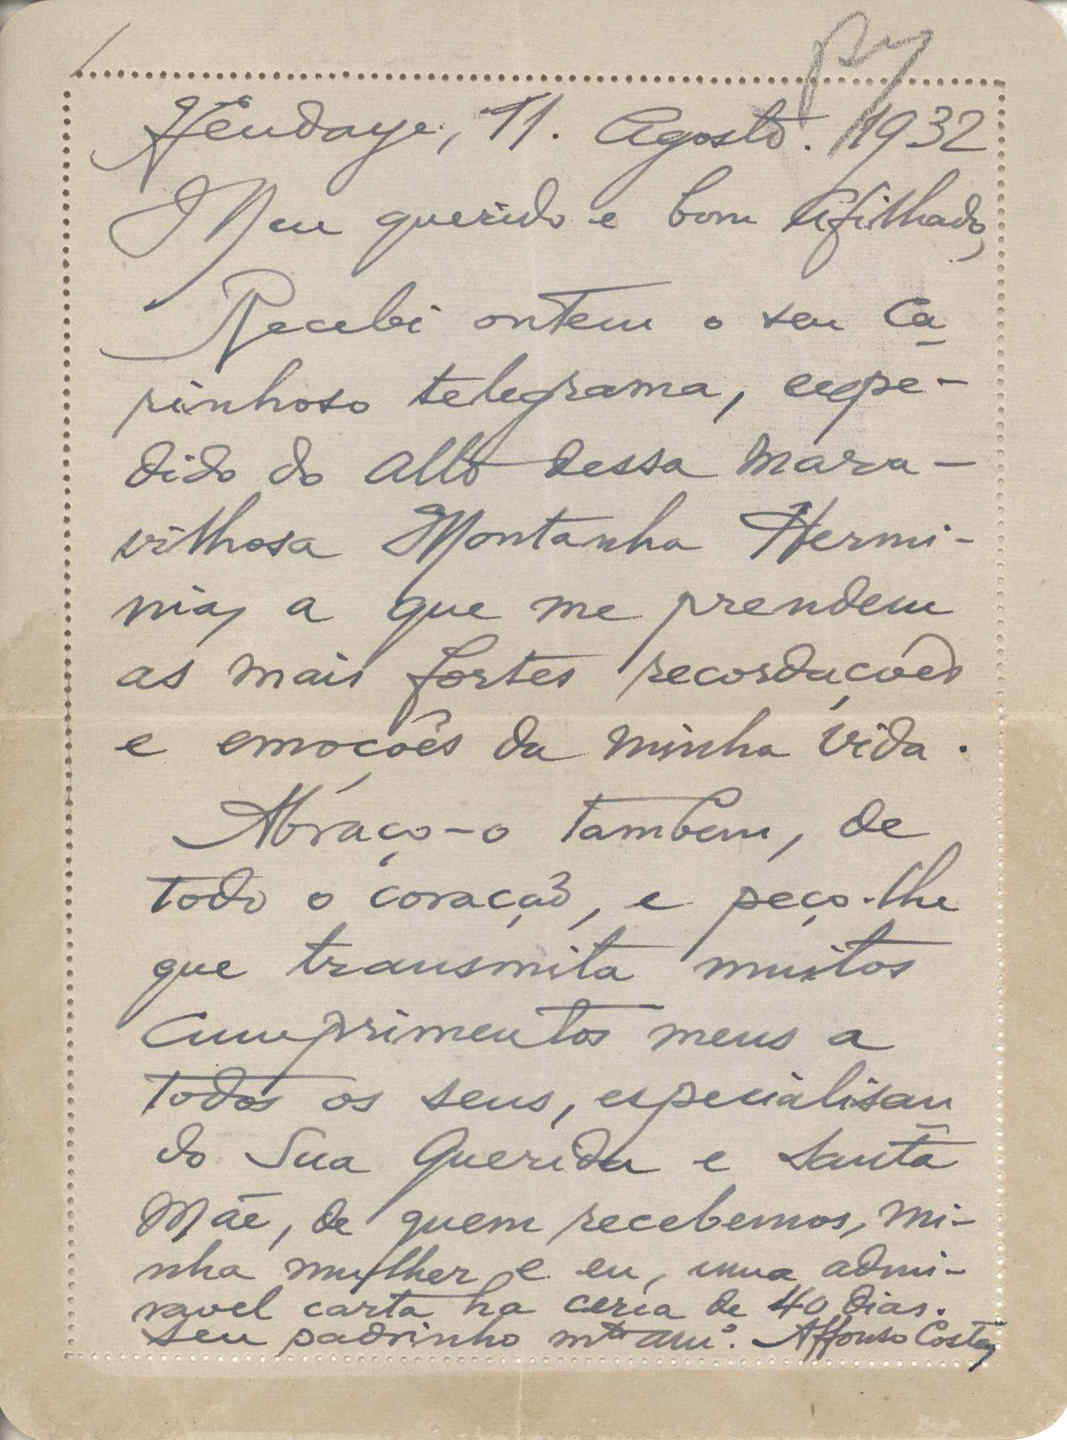 Hendaye, 11. Agosto. 1932
Meu querido e bom Afilhado,
Recebi ontem o seu ca
rinhoso telegrama, expe-
dido do alto dessa mara-
vilhosa Montanha Hermi-
nia, a que me prendem
as mais fortes recordações
e emoções da minha vida.
Abraço-o tambem, de
todo o coração, e peço-lhe
que transmita muitos
cumprimentos meus a
todos os seus, especialisan
do Sua Querida e Santa
Mãe, de quem recebemos, mi-
nha mulher e eu, uma admi-
ravel carta ha cerca de 40 dias.
Seu padrinho mto amo. Affonso Costa